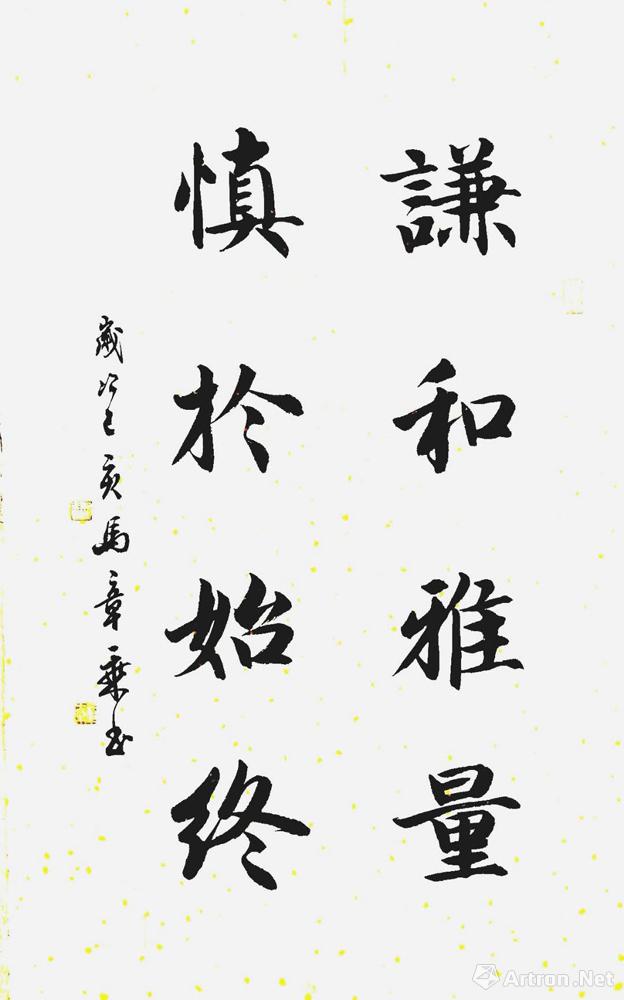 謙和雅量
慎於始終
歲次己亥馬章乘書
Artron.Net